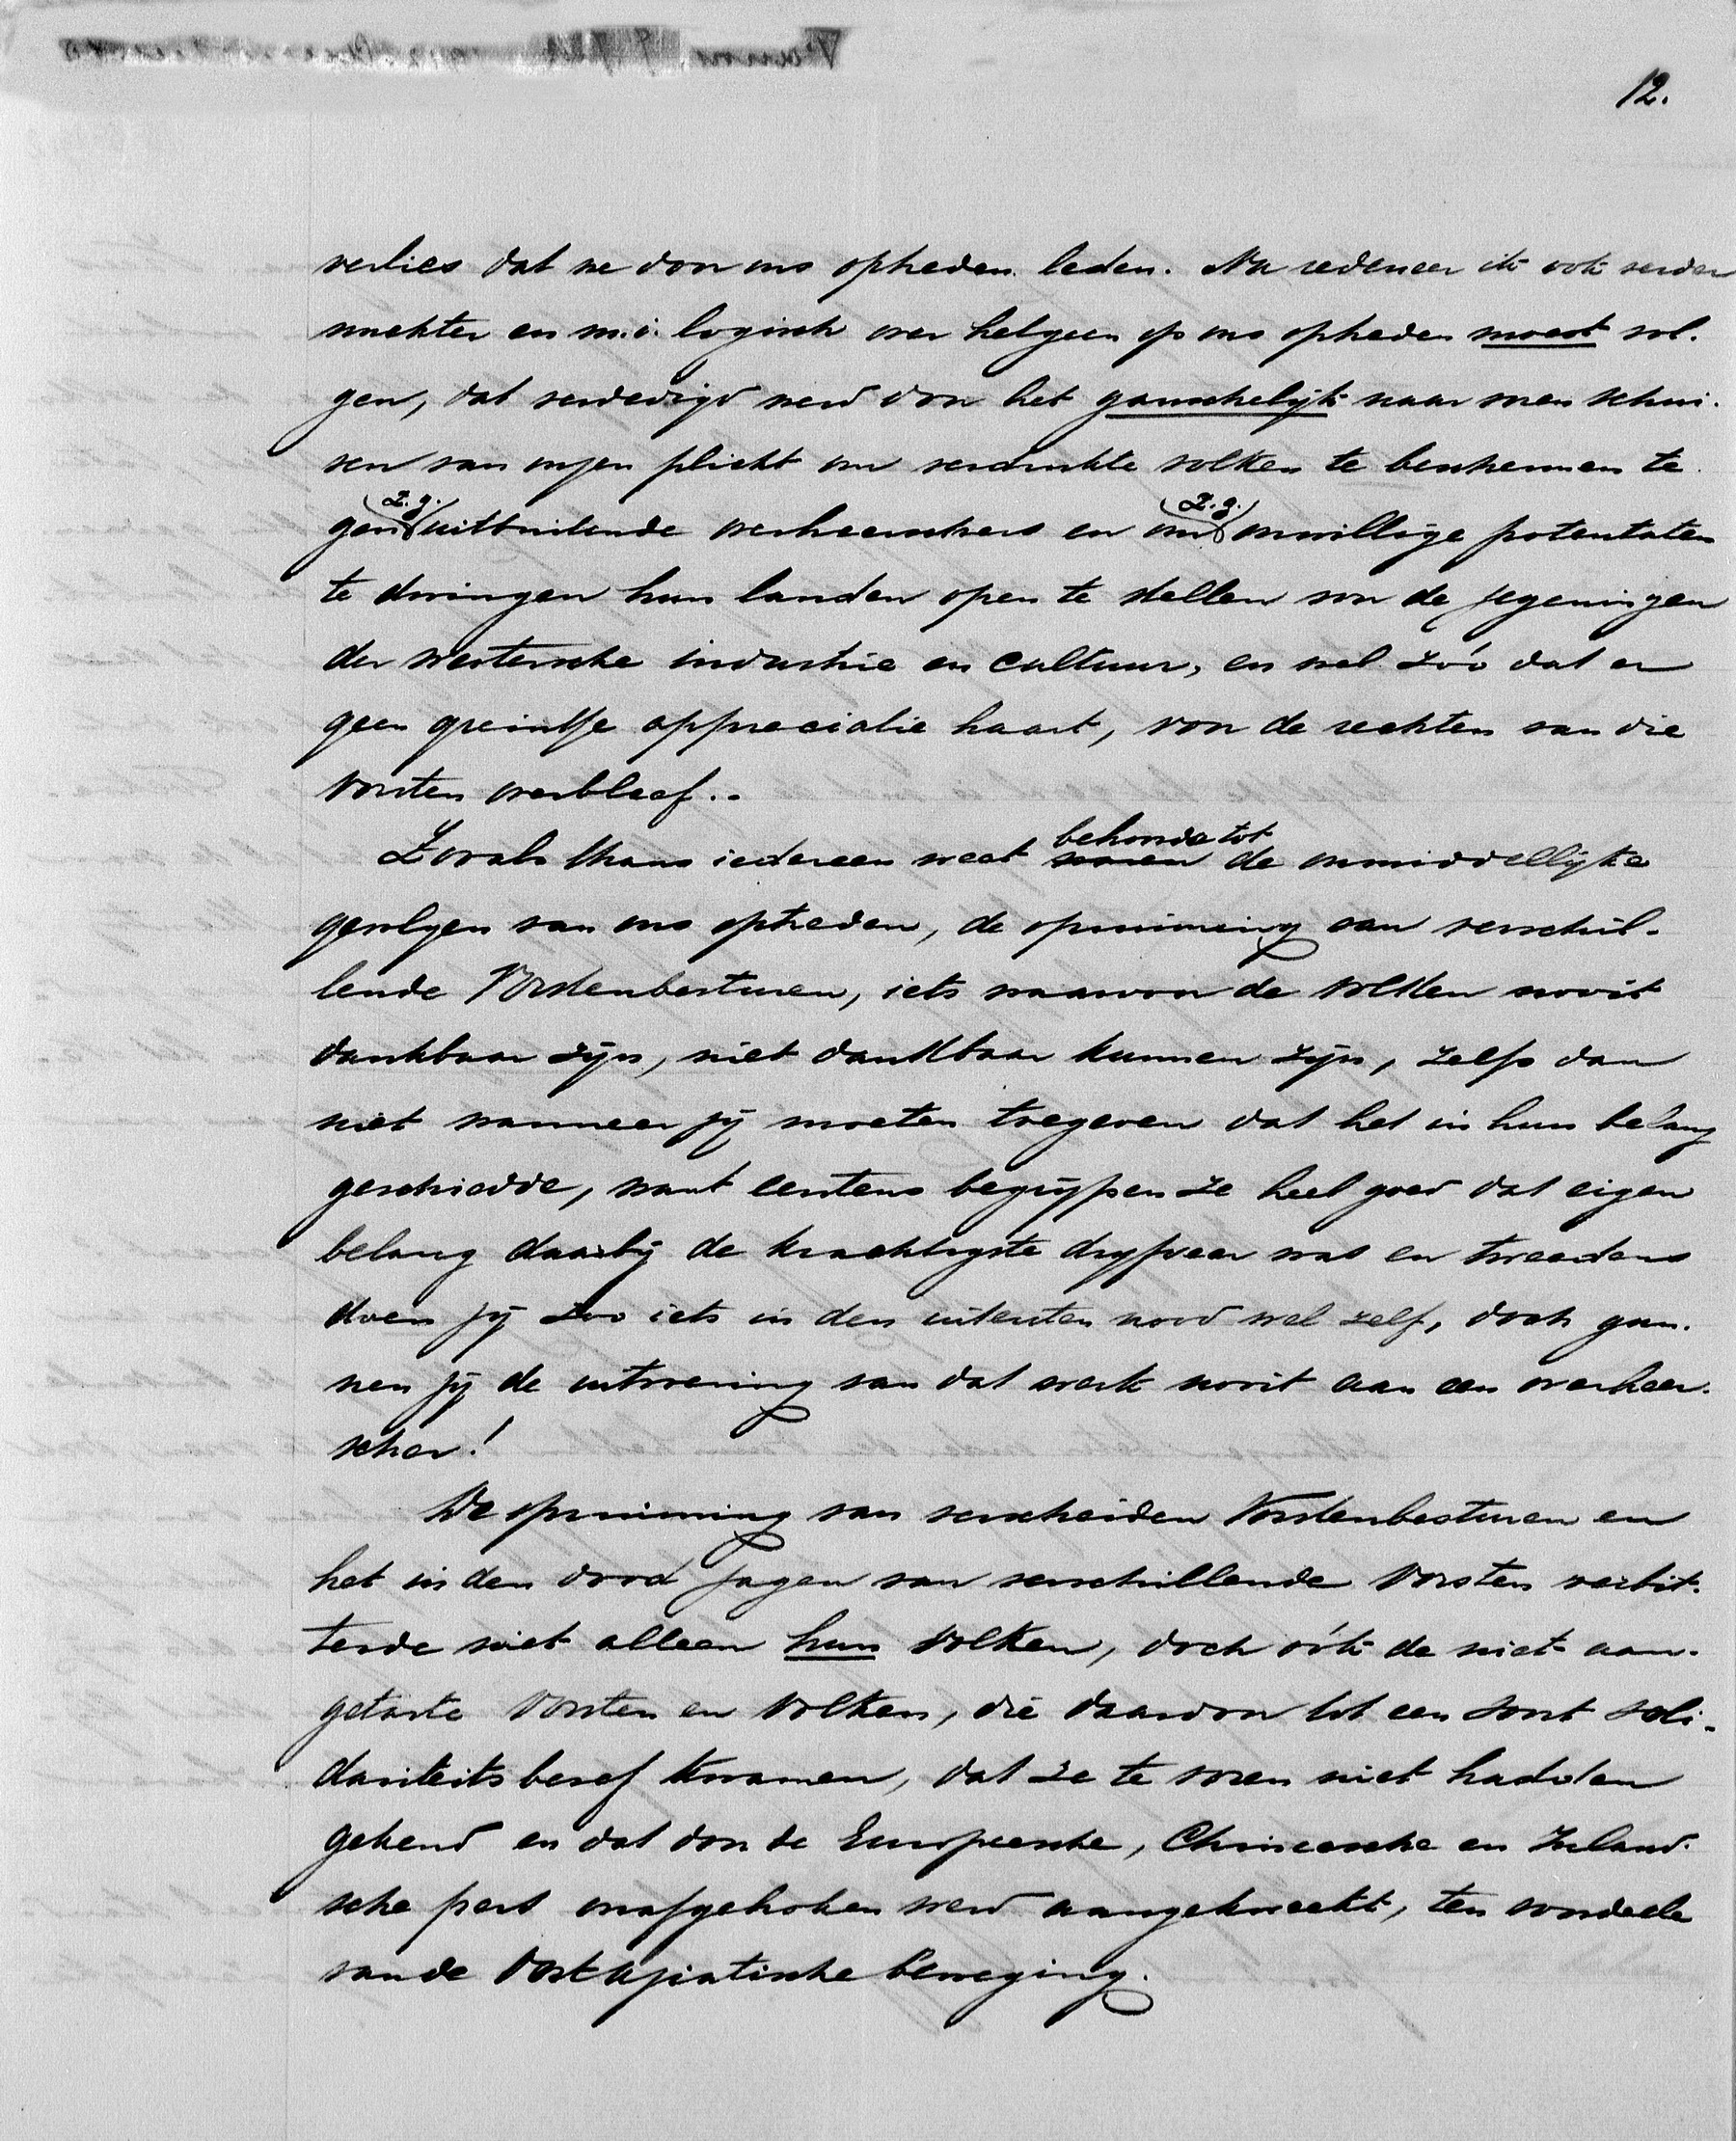 12.
verlies dat we door ons optreden leden. Nu redeneer ik ook verder
nuchter en m.i. logisch over hetgeen op ons optreden moest vol-
gen, dat verdedigd werd door het ganschelijk naar voren schui-
ven van onzen plicht om verdrukte volken te beschermen te-
gen (z.g.) uitbuitende overheerschers en om (z.g.) onwillige potentaten
te dwingen hun landen open te stellen voor de zegeningen
der westersche industrie en cultuur, en wel zóo dat er
geen greintje appreciatie haast, voor de rechten van die
Vorsten overbleef..
Zooals thans iedereen weet waren behoorde tot de onmiddellijke
gevolgen van ons optreden, de opruiming van verschil-
lende Vorstenbesturen, iets waarvoor de volken nooit
dankbaar zijn, niet dankbaar kunnen zijn, zelfs dan
niet wanneer zij moeten toegeven dat het in hun belang
geschiedde, want eerstens begrijpen ze heel goed dat eigen
belang daarbij de krachtigste drijfveer was en tweedens
doen zij zoo iets in den uitersten nood wel zelf, doch gun-
nen zij de uitvoering van dat werk nooit aan een overheer-
scher!
De opruiming van verscheiden Vorstenbesturen en
het in den dood jagen van verschillende Vorsten verbit-
terde niet alleen hun volken, doch óók de niet aan-
getaste Vorsten en Volken, die daardoor tot een soort soli-
dariteits besef kwamen, dat ze te voren niet hadden
gekend en dat door de Europeesche, Chineesche en Inland-
sche pers onafgebroken werd aangekweekt, ten voordeele
van de Oost Aziatische beweging.